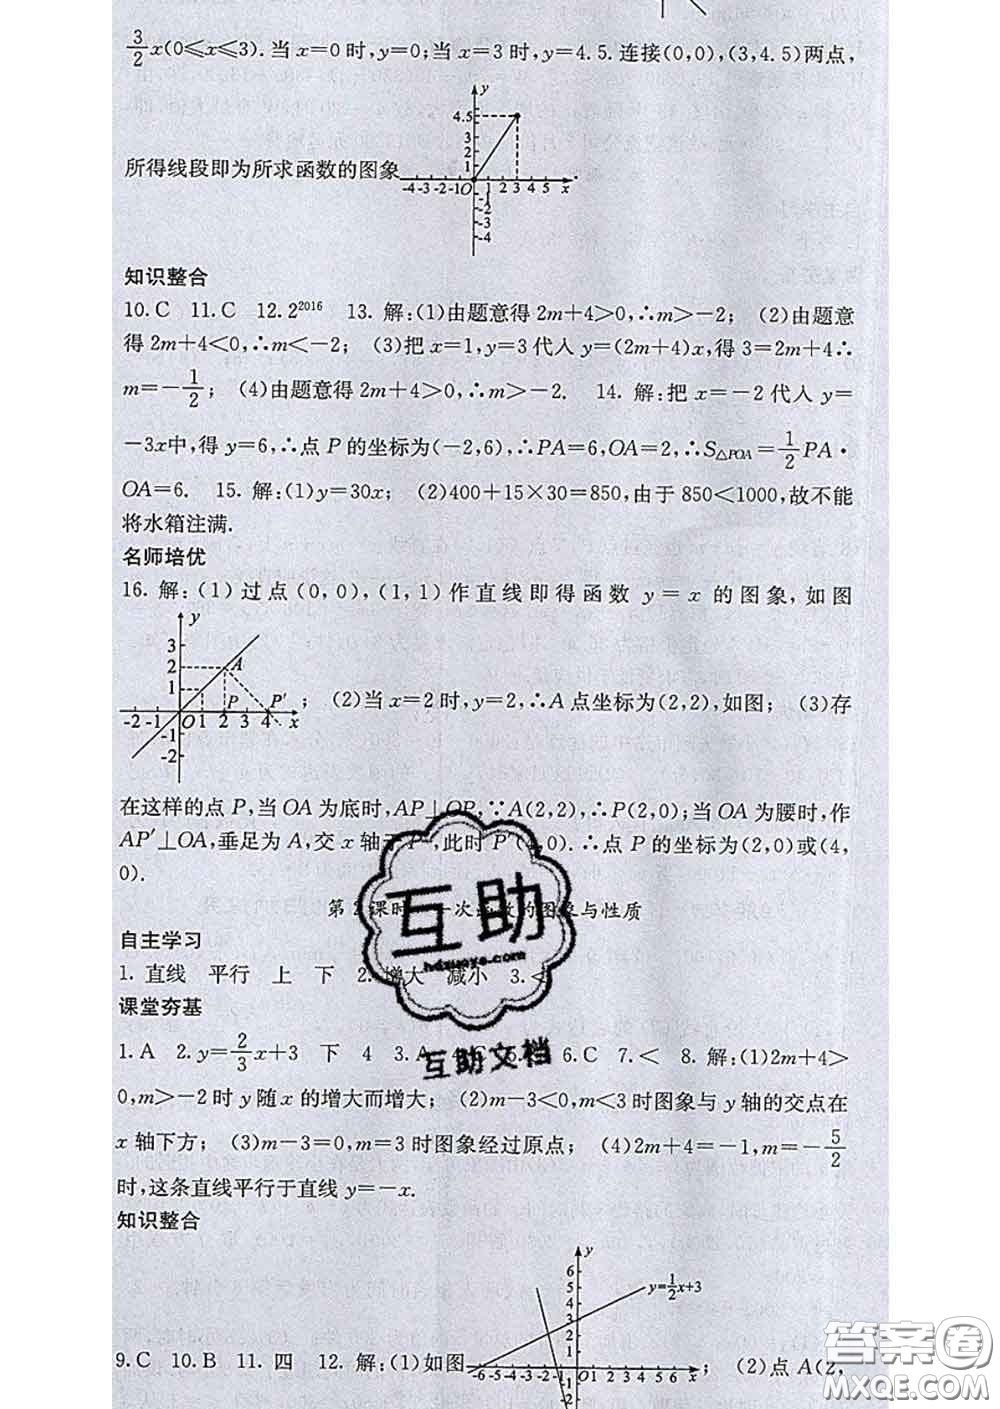 3/2x(0≤x≤3).当x=0时,y=0;当x=3时,y=4.5.连接(0,0),(3,4.5)两点,
y
4.5
3
2
1
所得线段即为所求函数的图象
-4 -3 -2 -1 O 1 2 3 4 5 x
-1
-2
-3
-4
知识整合
10.C 11.C 12.2^2016 13.解:(1)由题意得2m+4>0,∴m>-2; (2)由题意
得2m+4<0,∴m<-2; (3)把x=1,y=3代入y=(2m+4)x,得3=2m+4∴
m=-1/2; (4)由题意得2m+4>0,∴m>-2. 14.解:把x=-2代入y=
-3x中,得y=6,∴点P的坐标为(-2,6),∴PA=6,OA=2,∴S△POA=1/2PA·
OA=6. 15.解:(1)y=30x; (2)400+15×30=850,由于850<1000,故不能
将水箱注满.
名师培优
16.解:(1)过点(0,0),(1,1)作直线即得函数y=x的图象,如图
y
3
2 A
1
P P′
-2 -1 O 1 2 3 4 x
-1
-2
; (2)当x=2时,y=2,∴A点坐标为(2,2),如图; (3)存
在这样的点P,当OA为底时,AP⊥OP,∵A(2,2),∴P(2,0);当OA为腰时,作
AP′⊥OA,垂足为A,交x轴于P′,此时P′(4,0).∴点P的坐标为(2,0)或(4,
0).
第2课时 一次函数的图象与性质
自主学习
1.直线 平行 上 下 2.增大 减小 3.<
课堂夯基
1.A 2.y=2/3x+3 下 4 3.A 4.C 5. 6.C 7.< 8.解:(1)2m+4>
0,m>-2时y随x的增大而增大; (2)m-3<0,m<3时图象与y轴的交点在
x轴下方; (3)m-3=0,m=3时图象经过原点; (4)2m+4=-1,m=-5/2
时,这条直线平行于直线y=-x.
知识整合
y
6
5
4
3
2
1
y=1/2x+3
9.C 10.B 11.四 12.解:(1)如图
-6-5-4-3-2-1 O 1 2 3 4 5 6 x
-1
-2
; (2)点A(2,
互助
hdzuoye.com
互助文档
答案圈
MXQE.COM